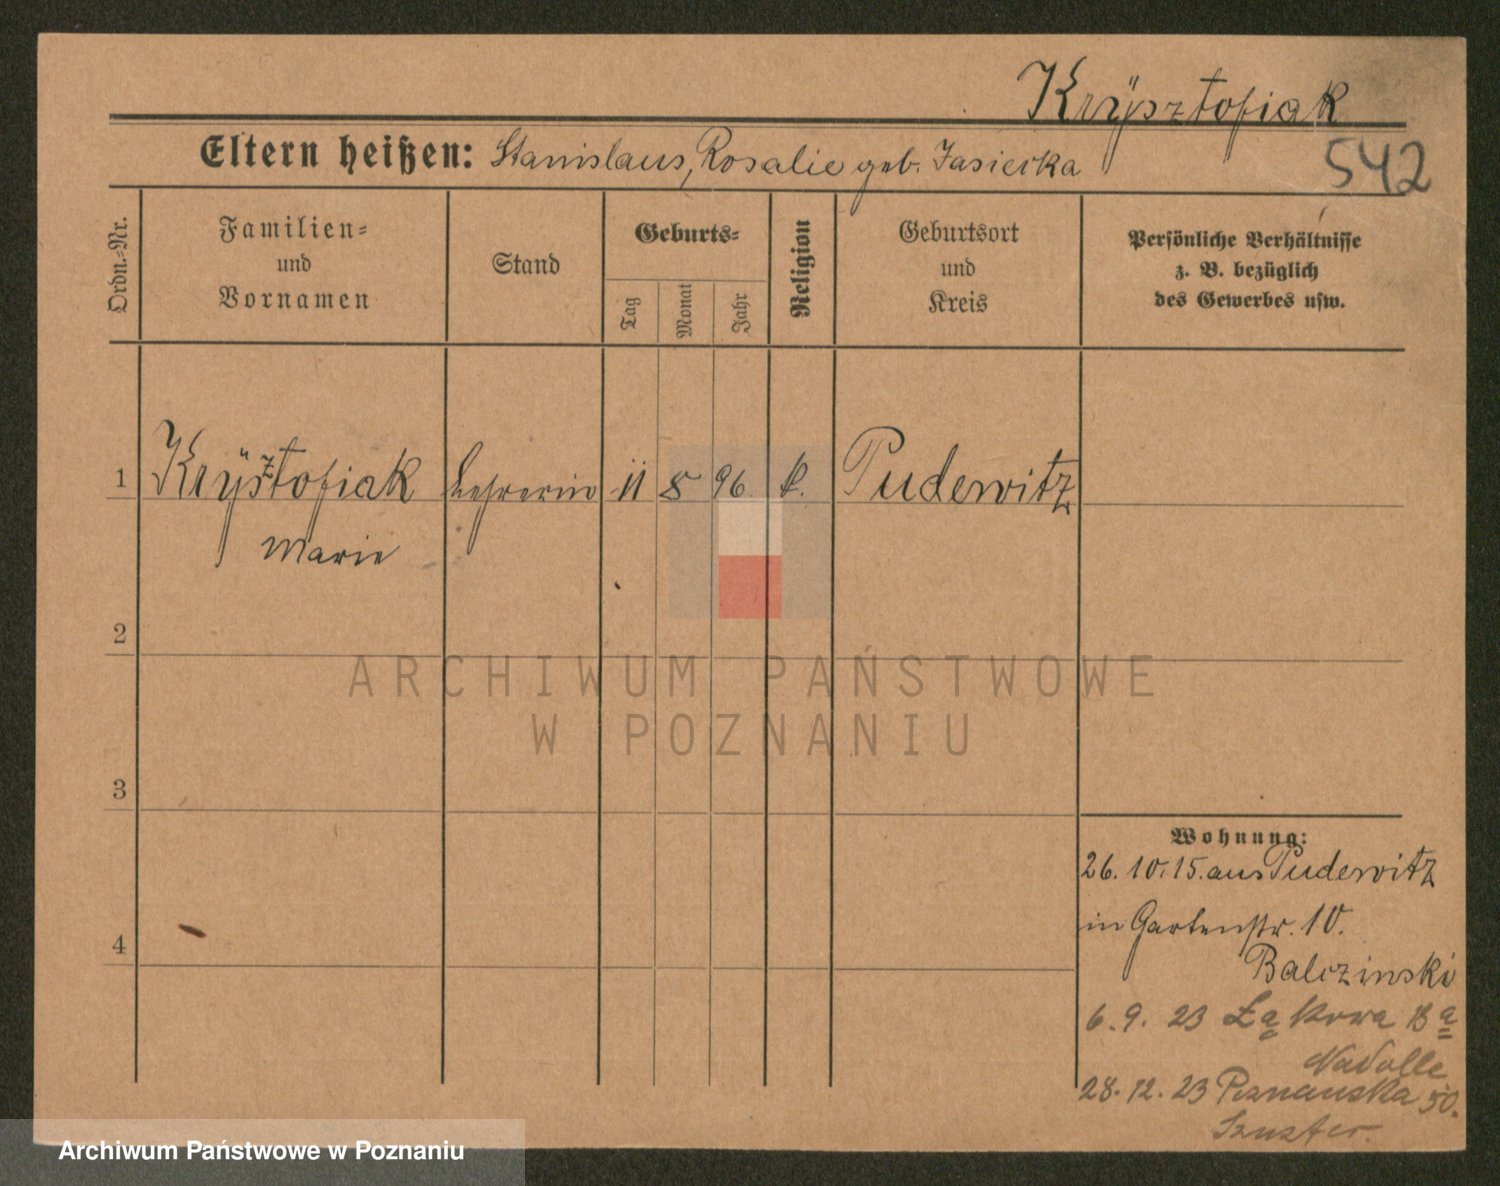 Krÿsztofiak
Eltern heißen: Stanislaus, Rosalie geb. Jasiecka
542
Ordn.-Nr.
Familien-
und
Vornamen
Stand
Geburts-
Tag
Monat
Jahr
Religion
Geburtsort
und
Kreis
Persönliche Verhältnisse
z. B. bezüglich
des Gewerbes usw.
1 Krÿsztofiak Lehrerin 11 8 96. k. Pudewitz
Marie
2
ARCHIWUM PAŃSTWOWE
W POZNANIU
3
Wohnung:
26. 10. 15. aus Pudewitz
in Gartenstr. 10.
4
Balczinski
6. 9. 23 Łąkowa 18 a
Nadolle
28. 12. 23 Poznanska 50.
Szuster.
Archiwum Państwowe w Poznaniu